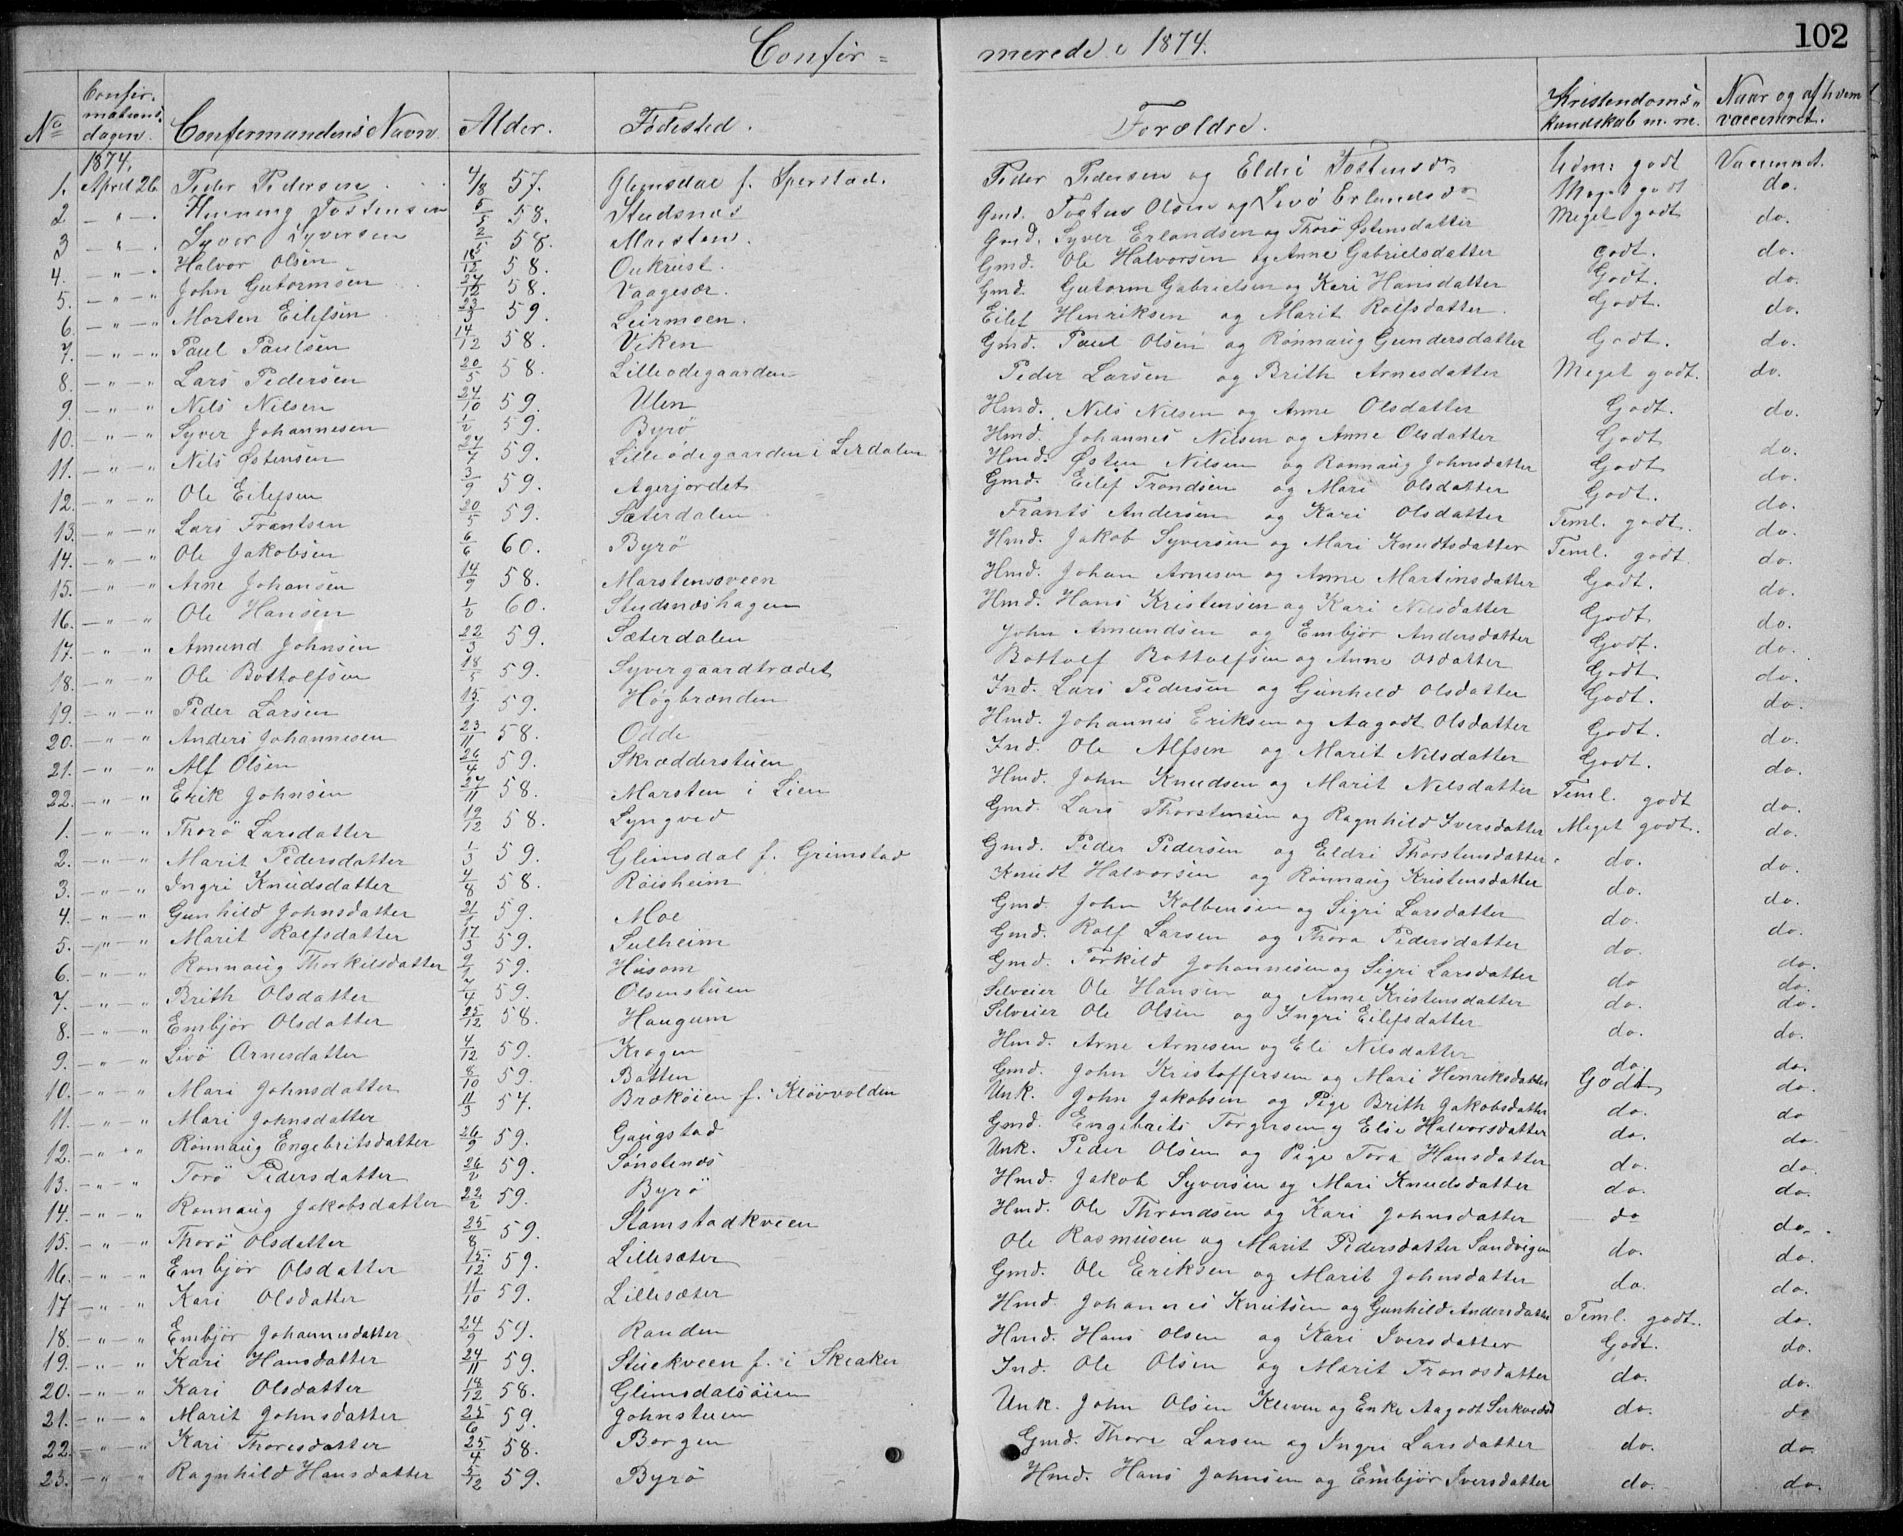 102
Confir= merede i 1874.
No Confirmationsdagen. Confirmandens Navn Alder. Fødested. Forældre. Kristendoms=kundskab m. m. Naar og af hvem vaccineret.
1874.
1. April 26. Peder Pedersen 4/8 57. Glemsdal f. Sperstad. Peder Pedersen og Eldri Tostensdr Udm. godt Vaccineret.
2 — " — Henning Tostensen 5/5 58. Studsnæs Gmd. Tosten Olsen og Livø Erlandsdr Meget godt do.
3 — " — Syver Syversen 2/5 58. Marsten. Gmd. Syver Erlandsen og Thorø Østensdatter Meget godt do.
4. — " — Halvor Olsen 18/12 58. Gmd. Ole Halvorsen og Anne Gabrielsdatter Godt. do.
5. — " — " John Gutormsen 27/12 58. Vaagesær. Gmd. Gutorm Gabrielsen og Kari Hansdatter Godt. do.
6. — " — " Morten Eilefsen 23/3 59. Leirmoen. Eilef Henriksen og Marit Rolfsdatter. Godt. do.
7. — " — " Paul Paulsen 14/12 58. Viken Gmd. Paul Olsen og Rønnaug Gundersdatter Godt. do.
8. — " — " Lars Pedersen 20/5 58. Lilleødegaarden Peder Larsen og Brith Arnesdatter Meget godt. do.
9. — " — " Nils Nilsen 24/10 59. Ulen Hmd. Nils Nilsen og Anne Olsdatter Godt. do.
10. — " — " Syver Johannesen 1/2 59. Byrø Hmd. Johannes Nilsen og Anne Olsdatter Godt do.
11. — " — " Nils Østensen 27/7 59. Lilleødegaarden i Lerdalen Hmd. Østen Nilsen og Rønnaug Johnsdatter Godt do.
12. — " — " Ole Eilefsen 3/9 59. Agerjordet Gmd. Eilef Trondsen og Mari Olsdatter Godt. do.
13. — " — " Lars Frantsen 20/5 59. Sæterdalen Frants Andersen og Kari Olsdatter Teml. godt. do.
14. — " — " Ole Jakobsen 6/6 60. Byrø Hmd. Jakob Syversen og Mari Knudtsdatter Teml. godt do.
15. — " — " Arne Johansen 14/9 58. Marstensveen Hmd. Johan Arnesen og Anne Martinsdatter Godt. do.
16. — " — " Ole Hansen 1/2 60. Studsnæshagen Hmd. Hans Kristensen og Kari Nilsdatter Godt do.
17. — " — " Amund Johnsen 22/3 59. Sæterdalen John Amundsen og Embjør Andersdatter Godt. do.
18. — " — " Ole Bottolfsen 18/5 59. Syvergaardtrædet Bottolf Bottolfsen og Anne Olsdatter Godt. do.
19. — " — " Peder Larsen 15/1 59. Høgbrænden Ind. Lars Pedersen og Gunhild Olsdatter Godt. do.
20. — " — " Anders Johannesen 23/11 58. Odde Hmd. Johannes Eriksen og Aagodt Olsdatter Godt. do.
21. — " — " Alf Olsen 26/4 59. Skrædderstuen Ind. Ole Alfsen og Marit Nilsdatter Godt. do.
22. — " — " Erik Johnsen 27/11 58. Marsten i Lien Hmd. John Knudsen og Marit Nilsdatter Teml. godt do.
1. — " — " Thorø Larsdatter 19/12 58. Lyngved Gmd. Lars Thorstensen og Ragnhild Iversdatter Meget godt. do.
2. — " — " Marit Pedersdatter 1/3 59. Glimsdal f. Grimstad Gmd. Peder Pedersen og Eldri Thorstensdatter do. do.
3. — " — " Ingri Knudsdatter 4/8 58. Røisheim Knudt Halvorsen og Rønnaug Kristensdatter do. do.
4. — " — " Gunhild Johnsdatter 21/1 59. Moe Gmd. John Kolbensen og Sigri Larsdatter do. do.
5. — " — " Marit Rolfsdatter 17/3 59. Sulheim Gmd. Rolf Larsen og Thora Pedersdatter do. do.
6. — " — " Rønnaug Thorkilsdatter 9/1 59. Husom Gmd. Torkild Johannesen og Sigri Larsdatter do do.
7. — " — " Brith Olsdatter 4/4 59. Olsenstuen Selveier Ole Hansen og Anne Kristensdatter do. do.
8. — " — " Embjør Olsdatter 25/12 58. Haugum Selveier Ole Olsen og Ingri Eilefsdatter do. do.
9. — " — " Livø Arnesdatter 4/12 59. Krogen Hmd. Arne Arnesen og Eli Nilsdatter do. do.
10. — " — " Mari Johnsdatter 8/10 59. Batten Gmd. John Kristoffersen og Mari Henriksdatter Godt do.
11. — " — " Mari Johnsdatter 11/3 57. Brækøien f. Kløvvolden Unk. John Jakobsen og Pige Brith Jakobsdatter do. do
12. — " — " Rønnaug Engebritsdatter 26/9 59. Gaugstad Gmd. Engebrits Torgersen og Elsi Halvorsdatter do. do.
13. — " — " Torø Pedersdatter 26/2 59. Sønstenæs Unk. Peder Olsen og Pige Tora Hansdatter do. do.
14. — " — " Rønnaug Jakobsdatter 22/2 59. Byrø Hmd. Jakob Syversen og Mari Knudsdatter do. do.
15. — " — " Thorø Olsdatter 25/8 59. Stamstadkveen Hmd. Ole Throndsen og Kari Johnsdatter do do.
16. — " — " Embjør Olsdatter 15/12 59. Lillesæter Ole Rasmusen og Marit Pedersdatter Sandvigen do. do.
17 — " — " Kari Olsdatter 11/10 59. Lillesæter Gmd. Ole Eriksen og Marit Johnsdatter do. do.
18. — " — " Embjør Johannesdatter 24/9 59. Randen Hmd. Johannes Knutsen og Gunhild Andersdatter Teml. godt. do.
19. — " — " Kari Hansdatter 24/11 59. Stuekveen f. i Skeaker Hmd. Hans Olsen og Kari Iversdatter Godt. do.
20. — " — " Kari Olsdatter 18/12 58. Glimsdalsøien Ind. Ole Olsen og Marit Tronosdatter do. do.
21. — " — " Marit Johnsdatter 25/6 59. Johnstuen Unk. John Olsen Kleven og Enke Aagodt do. do
22. — " — " Kari Thoresdatter 25/4 58. Borgen Gmd. Thore Larsen og Ingri Larsdatter do. do.
23. — " — " Ragnhild Hansdatter 5/12 59. Byrø Hmd. Hans Johnsen og Embjør Iversdatter do. do.